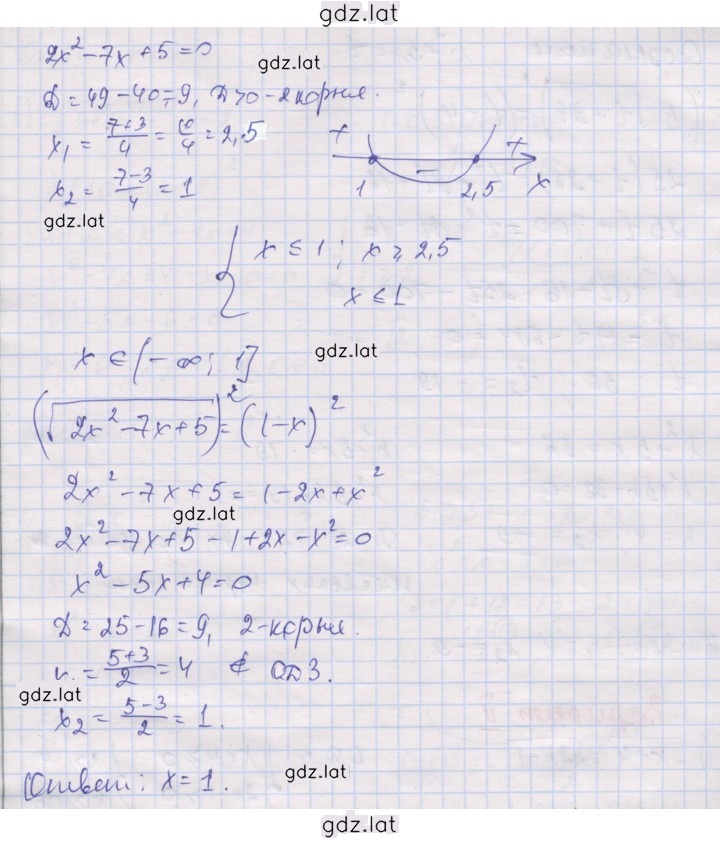 gdz.lat
2x²-7x+5=0
gdz.lat
D=49-40=9, D>0-2корня.
x₁ = (7+3)/4 = 10/4 = 2,5
+ - +
x₂ = (7-3)/4 = 1
1 2,5 x
gdz.lat
{ x ≤ 1; x ⩾ 2,5
x ≤ 1
x ∈ (-∞; 1]
gdz.lat
(√(2x²-7x+5))² = (1-x)²
2x²-7x+5=1-2x+x²
gdz.lat
2x²-7x+5-1+2x-x²=0
x²-5x+4=0
D=25-16=9, 2-корня.
= (5+3)/2 = 4 ∉ ОДЗ.
gdz.lat
x₂ = (5-3)/2 = 1.
gdz.lat
Ответ: x=1.
gdz.lat